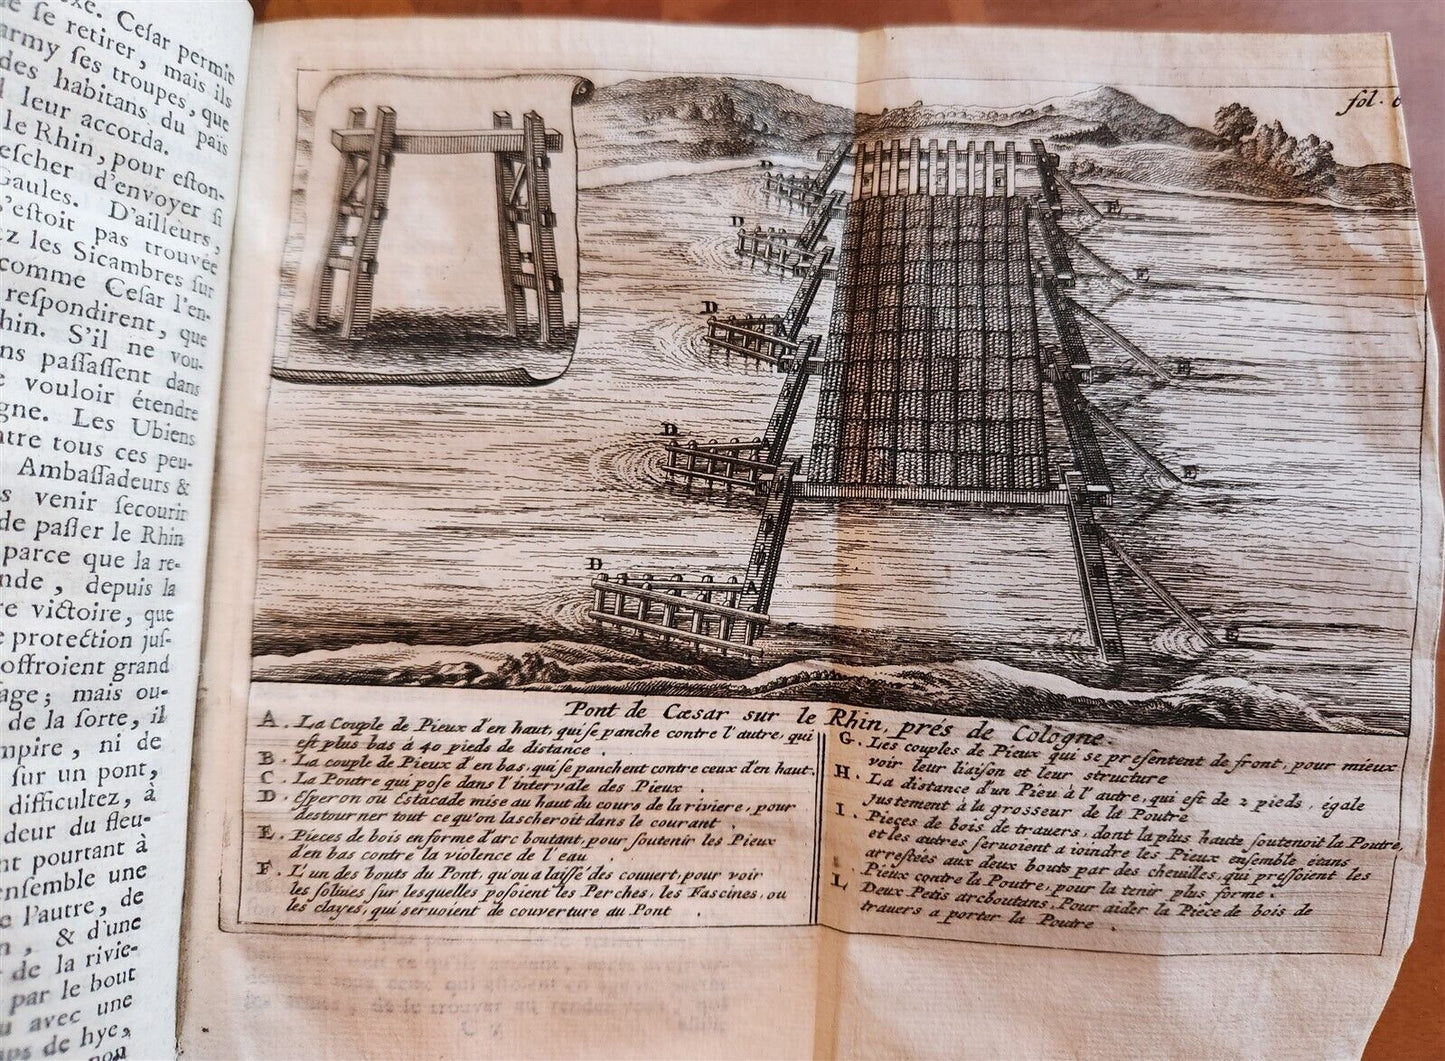 Cesar permit
se retirer, mais ils
army ses troupes, que
des habitans du païs
leur accorda.
le Rhin, pour eston-
escher d'envoyer si
Gaules. D'ailleurs,
s'estoit pas trouvée
ez les Sicambres sur
comme Cesar l'en-
respondirent, que
hin. S'il ne vou-
ns passassent dans
vouloir étendre
gne. Les Ubiens
ntre tous ces peu-
Ambassadeurs &
s venir secourir
de passer le Rhin
parce que la re-
nde, depuis la
re victoire, que
protection jus-
offroient grand
age; mais ou-
de la sorte, il
mpire, ni de
sur un pont,
difficultez, à
deur du fleu-
nt pourtant à
ensemble une
e l'autre, de
n, & d'une
de la rivie-
par le bout
u avec une
ps de hye,
non
fol.
D
D
D
D
D
E
E
E
E
E
A
C
Pont de Cæsar sur le Rhin, prés de Cologne
A. La Couple de Pieux d'en haut, qui se panche contre l'autre, qui
est plus bas à 40 pieds de distance.
B. La couple de Pieux d'en bas, qui se panchent contre ceux d'en haut.
C. La Poutre qui pose dans l'intervale des Pieux.
D. Esperon ou Estacade mise au haut du cours de la riviere, pour
destourner tout ce qu'on lascheroit dans le courant.
E. Pieces de bois en forme d'arc boutant, pour soutenir les Pieux
d'en bas contre la violence de l'eau.
F. L'un des bouts du Pont, qu'ou a laissé des couvert, pour voir
les solives sur lesquelles posoient les Perches, les Fascines, ou
les clayes, qui servoient de couverture au Pont.
G. Les couples de Pieux qui se presentent de front, pour mieux
voir leur liaison et leur structure
H. La distance d'un Pieu à l'autre, qui est de 2 pieds, égale
justement à la grosseur de la Poutre
I. Pieces de bois de travers, dont la plus haute soutenoit la Poutre,
et les autres servoient a joindre les Pieux ensemble étans
arrestées aux deux bouts par des chevilles, qui pressoient les
Pieux contre la Poutre, pour la tenir plus forme.
L. Deux Petis arcboutans, Pour aider la Piece de bois de
travers a porter la Poutre.